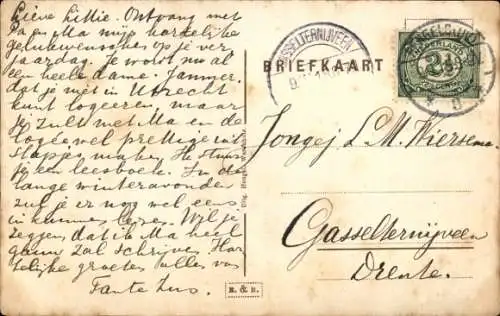 Lieve Lillie. Ontvang met
Pa en Ma mijn hartelijke
gelukwenschen op je ver-
jaardag. Je wordt nu al
een heele dame. Jammer,
dat je niet in Utrecht
kunt logeeren, maar
je zult met Ma en de
logée wel prettige uit
stapjes maken. Ik stuur
je een leesboek. In de
lange winteravonden
zul je er nog wel eens
in kunnen lezen. Wil je
zeggen, dat ik Ma heel
gauw zal schrijven. Har
telijke groeten alles van
Tante
GASSELTERNIJVEEN
BRIEFKAART
NEDERLAND
2½
CENT
Jongej. L. M. Wiersema.
Gasselternijveen
Drente.
R. & B.